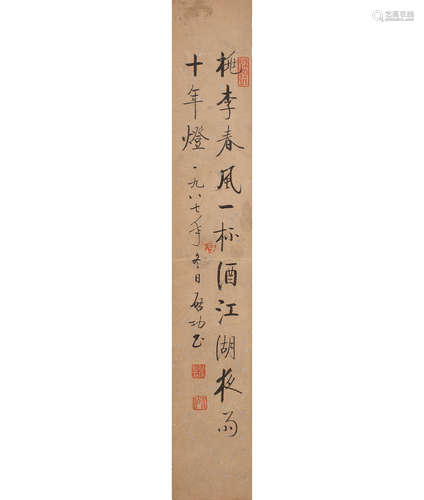 桃李春風一杯酒江湖夜雨
十年燈一九八七年冬日啟功書